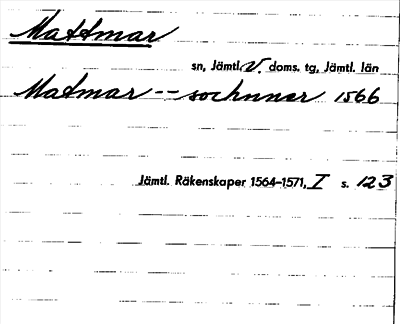 Mattmar
sn, Jämtl. V. doms. tg, Jämtl. län
Matmar -- sochnner 1566
Jämtl. Räkenskaper 1564-1571, I s. 123